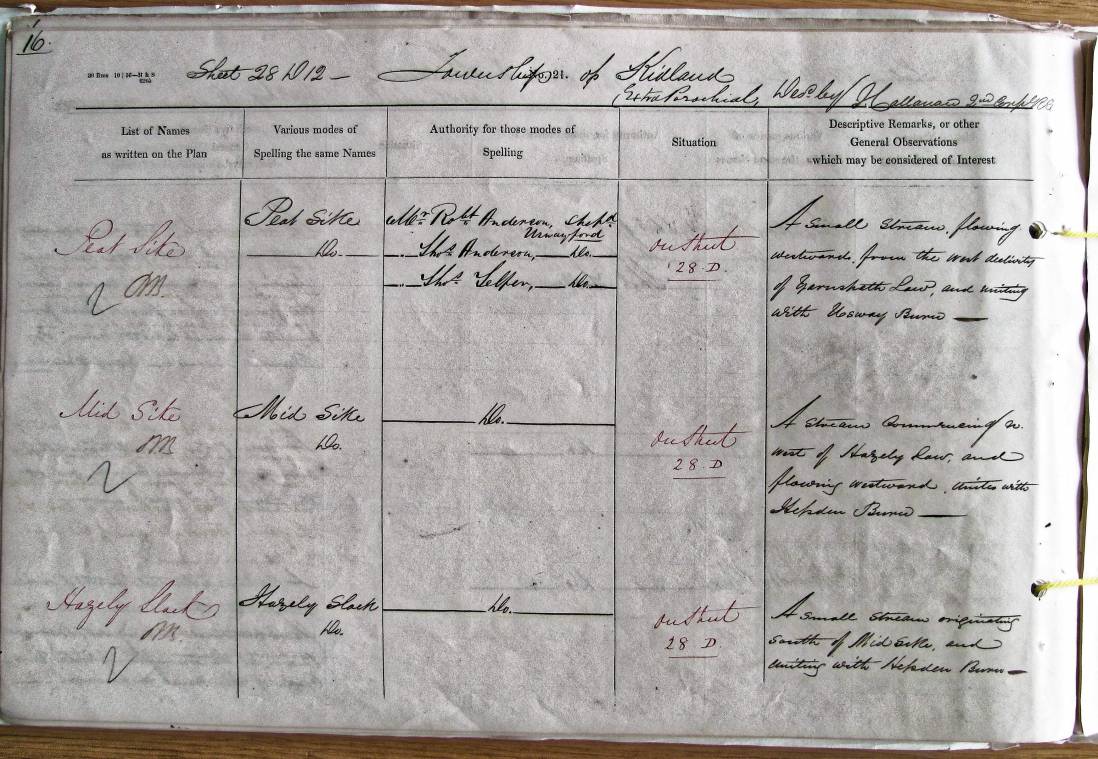 16.
Sheet 28 D 12 — Township of Kidland
(Extra Parochial) Des.d by J Hallanan 2nd Corpl RE
List of Names as written on the Plan
Various modes of Spelling the same Names
Authority for those modes of Spelling
Situation
Descriptive Remarks, or other General Observations which may be considered of Interest
Peat Sike
Peat Sike
Do.
Mr. Robt Anderson, Shepd
Uswayford
" Thos. Anderson, Do.
" Thos. Telfer, Do.
on Sheet
28. D.
A Small Stream, flowing
westward, from the west declivity
of Yarnspath Law, and uniting
with Usway Burn —
Mid Sike
Mid Sike
Do.
Do.
on Sheet
28. D
A Stream Commencing N.
west of Hazely Law, and
flowing westward, unites with
Hepden Burn —
Hazely Slack
Hazely Slack
Do.
Do.
on Sheet
28 D.
A small Stream originating
South of Mid Sike, and
uniting with Hepden Burn —